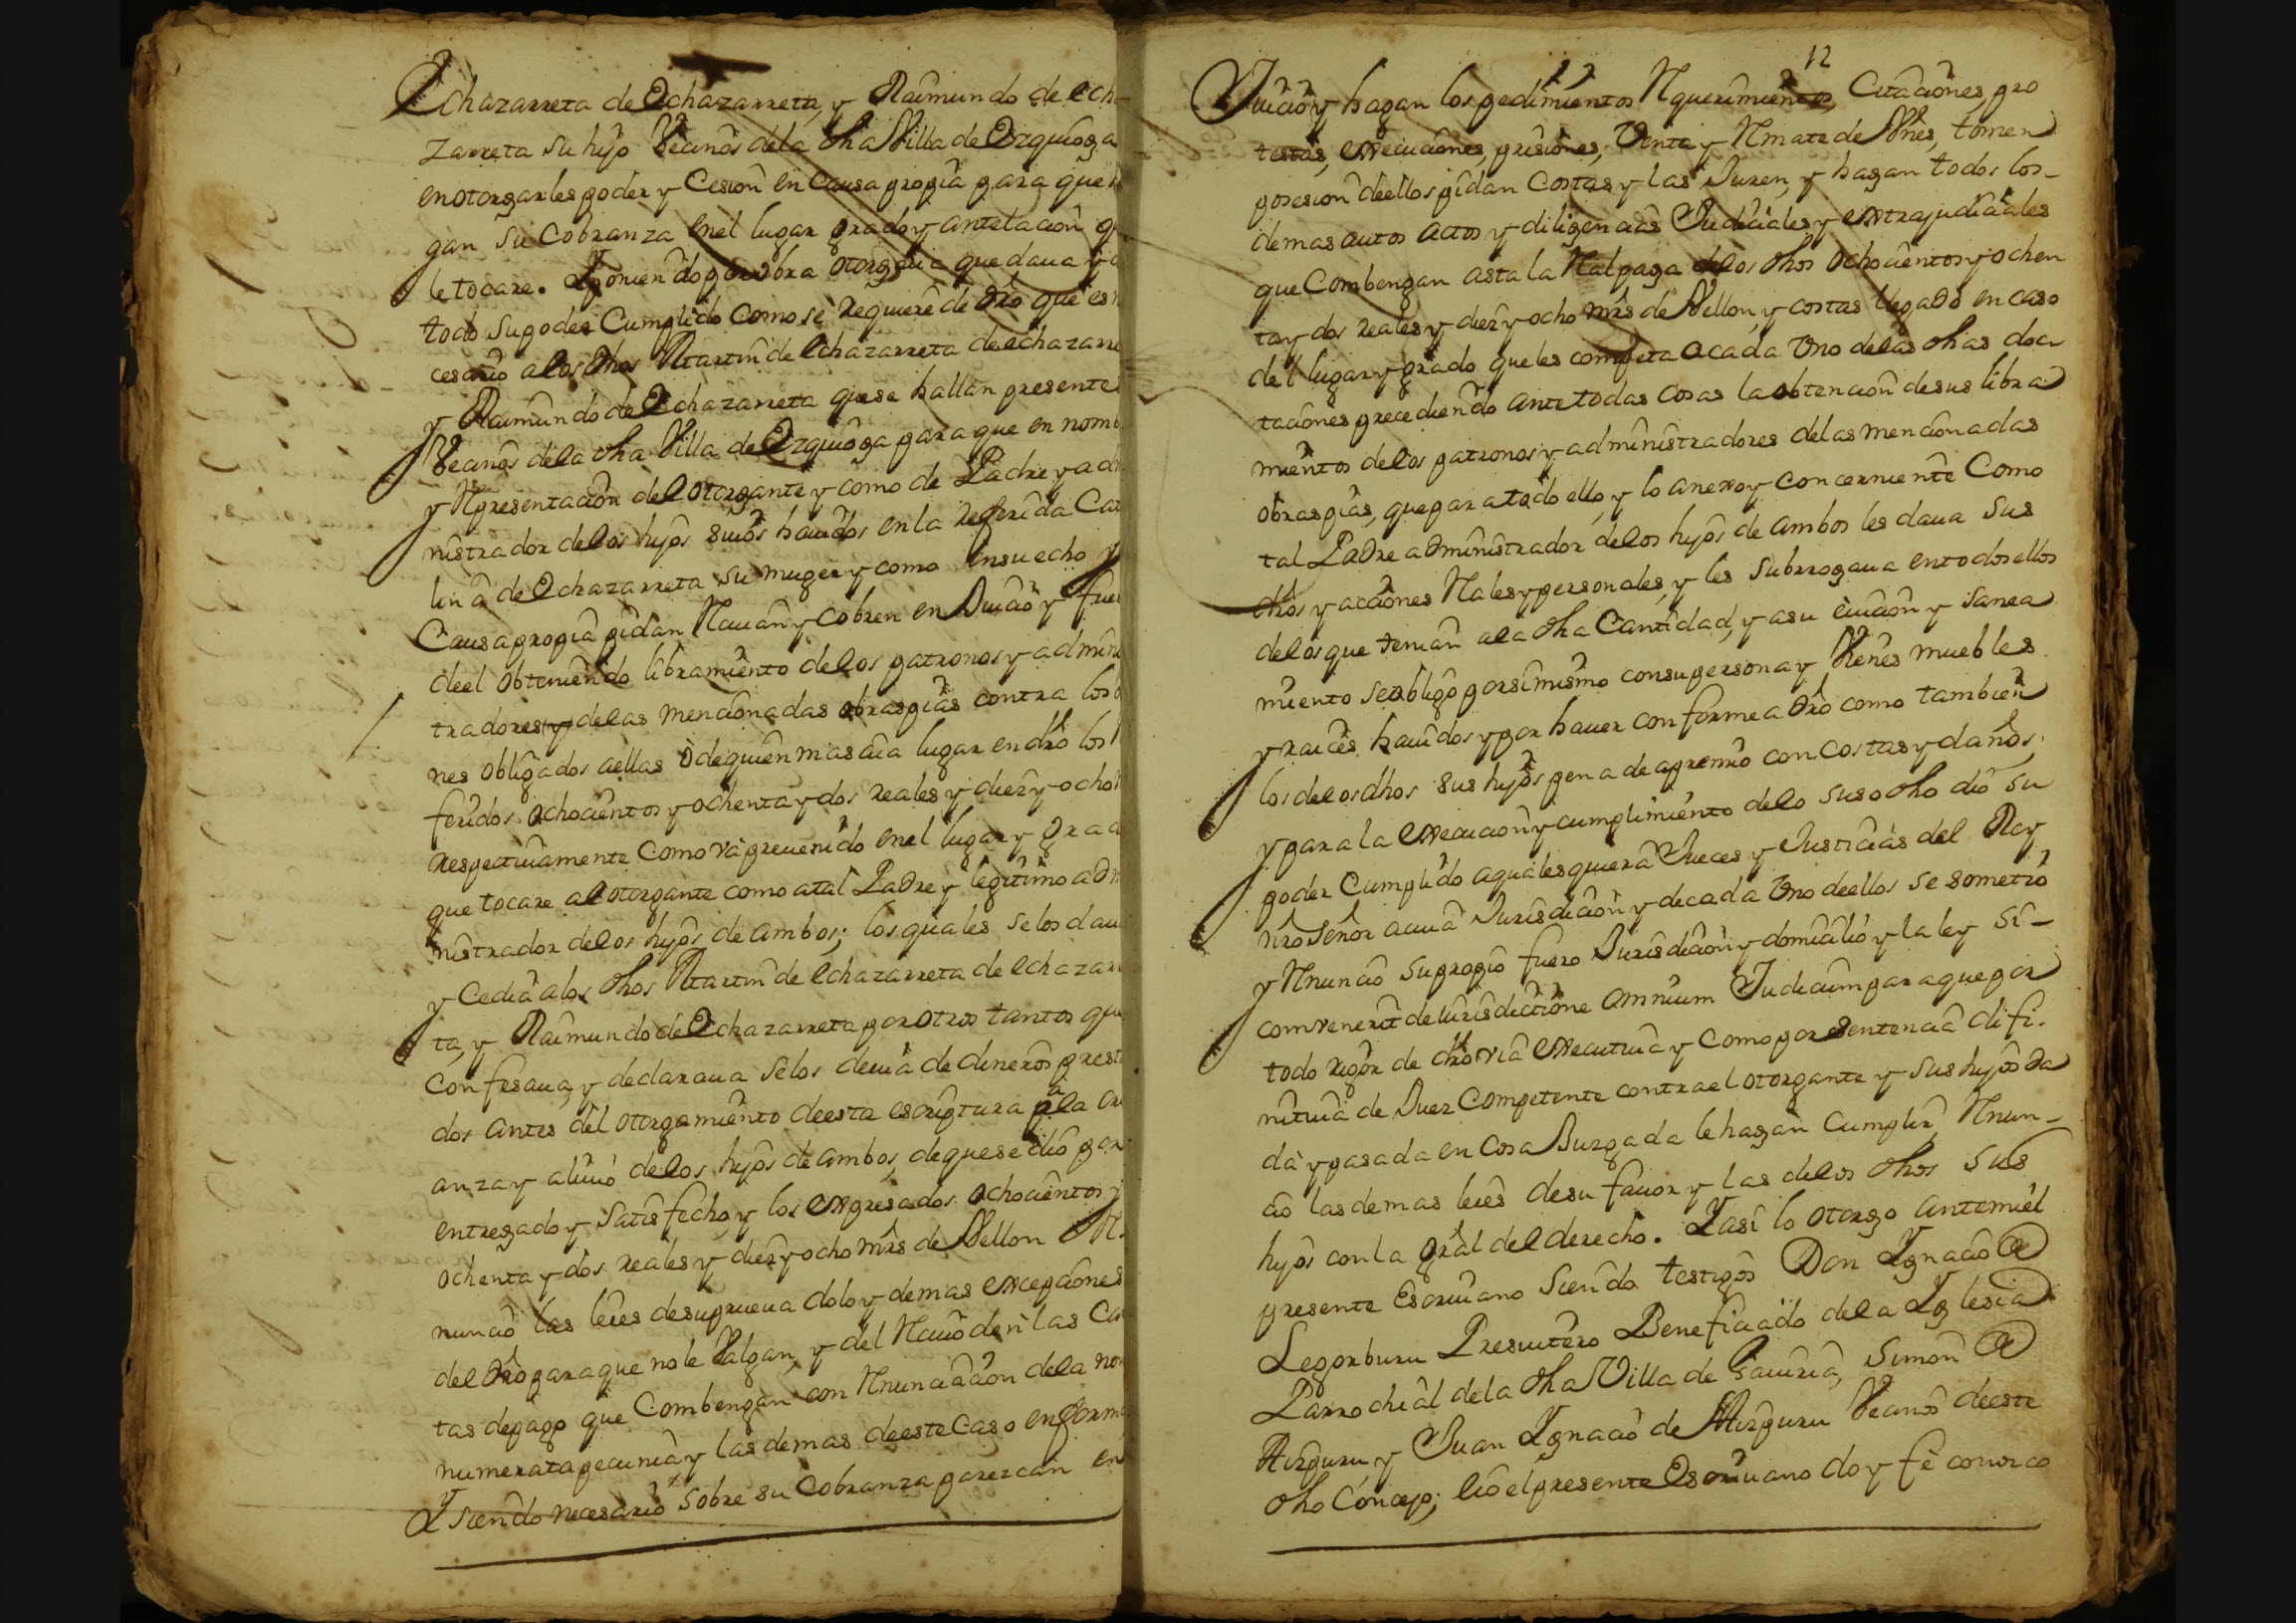 Echazarreta de Echazarreta, y Raimundo de ech
zarreta su hijo Vecinos dela dha Villa de Ezquioga
en otorgarles poder y Cesion en Causa propia para que
gan su Cobranza enel lugar grado y antelacion q
le tocare. Y poniendo por obra otorgaua que daua y
todo su poder Cumplido Como se requiere de dro que es n
cesario alos dhos Martin de Echazarreta de echazarre
y Raimundo de Echazarreta que se hallan presentes
Vecinos dela dha Villa de Ezquioga para que en nomb
y Representacion del otorgante y como de Padre y ad
nistrador delos hijos suios hauidos en la referida Cat
lina de Echazarreta su muger y como en su echo y
Causa propia pidan Reciuan y Cobren en Juicio y fue
deel obteniendo libramiento delos patronos y admini
tradores delas mencionadas obras pias contra los
nes obligados aellas ò de quien mas aia lugar en dro los
feridos ochocientos y ochenta y dos reales y diez y ocho
respectiuamente Como và preuenido enel lugar y grad
que tocare al otorgante como atal Padre y legitimo adm
nistrador delos hijos de ambos; los quales se los daua
y Cedia alos dhos Martin de Echazarreta de echazar
ta, y Raimundo de Echazarreta por otros tantos que
Confesaua, y declaraua se los deuia de dineros prest
dos antes del otorgamiento de esta escriptura pa la cri
anza y aliuio delos hijos de ambos, de que se dio por
entregado y satisfecho, y los expresados ochocientos y
ochenta y dos reales y diez y ocho mrs de Vellon Re
nuncio las leies de su prueua dolo y demas excepciones
del dro para que no le Valgan, y del Reciuo den las Car
tas de pago que Combengan con Renunciacion dela non
numerata pecunia y las demas de este Caso en forma
Y siendo necesario sobre su Cobranza parezcan en
12
Juicio y hagan los pedimientos Requerimientos, Citaciones, pro
testas, execuciones, prisiones, Venta y Remate de Vnes, tomen
posesion de ellos pidan Costas y las Juren, y hagan todos los
demas autos actos y diligencias Judiciales y extrajudiciales
que Combengan asta la Real paga delos dhos ochocientos y ochen
ta y dos reales y diez y ocho mrs de Vellon, y costas llegado en caso
del lugar y grado que les competa acada Vno delas dhas doa
taciones precediendo ante todas Cosas la obtencion de sus libra
mientos delos patronos y administradores delas mencionadas
obras pias, que para todo ello, y lo anexo y concerniente Como
tal Padre administrador delos hijos de ambos les daua sus
dros y acciones Reales y personales, y les subrrogaua en todos ellos
delos que tenian ala dha Cantidad, y asu euicion y sanea
miento se obligò por si mismo con su persona y Vienes muebles
y raices hauidos y por hauer conforme a dro como tambien
los delos dhos sus hijos pena de apremio con Costas y daños,
y para la execucion y cumplimiento delo suso dho dio su
poder Cumplido a qualesquiera Jueces y Justicias del Rey
nro Señor acuia Jurisdicion y de cada Vno deellos se sometio
y Renuncio su propio fuero Jurisdicion y domicilio y la ley si
comvenerit de Jurisdictione omnium Judicum para que por
todo rigor de dro via executiua y Como por sentencia difi
nitiua de Juez Competente contra el otorgante y sus hijos da
da y pasada en Cosa Juzgada le hagan Cumplir, Renun
cio las demas leies de su fauor y las delos dhos sus
hijos con la gral del derecho. Y asi lo otorgo ante mi el
presente Escriuano siendo testigos Don Ygnacio de
Legorburu Presuitero Beneficiado dela Yglesia
Parrochial dela dha Villa de Gauiria, Simon de
Aizpuru y Juan Ygnacio de Aizpuru Vecinos de este
dho Concejo; è io el presente Escriuano doy fè conozco